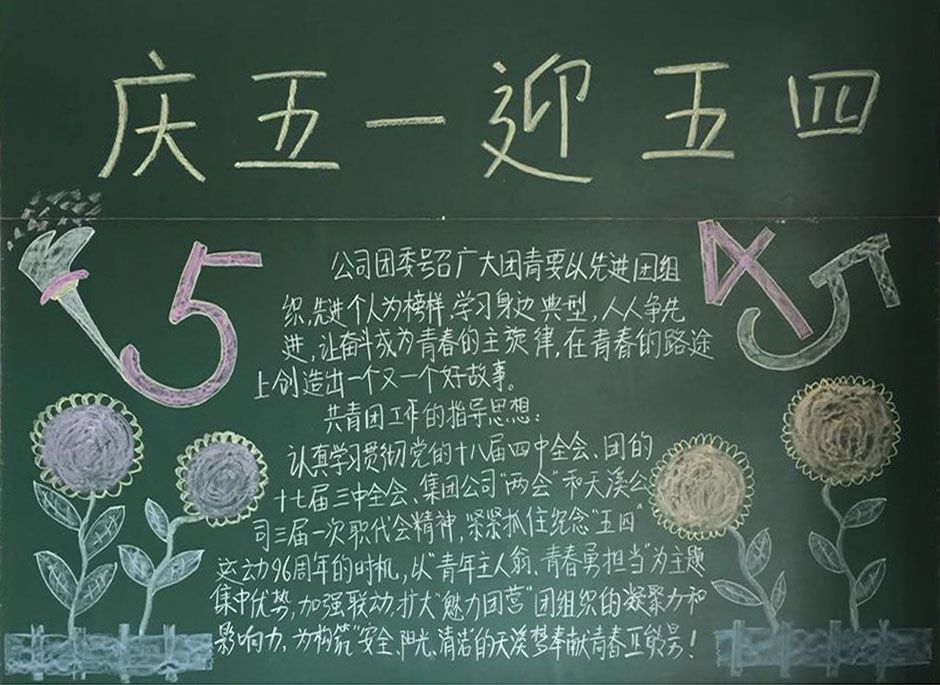 庆五一迎五四
5
45
公司团委号召广大团青要以先进团组
织,先进个人为榜样,学习身边典型,人人争先
进,让奋斗成为青春的主旋律,在青春的路途
上创造出一个又一个好故事。
共青团工作的指导思想:
认真学习贯彻党的十八届四中全会、团的
十七届三中全会、集团公司"两会"和天溪公
司三届一次职代会精神,紧紧抓住纪念"五四"
运动96周年的时机,以"青年主人翁、青春勇担当"为主题
集中优势,加强联动,扩大"魅力团营"团组织的凝聚力和
影响力,为构筑"安全、阳光、清洁的天溪梦奉献青春正能量!